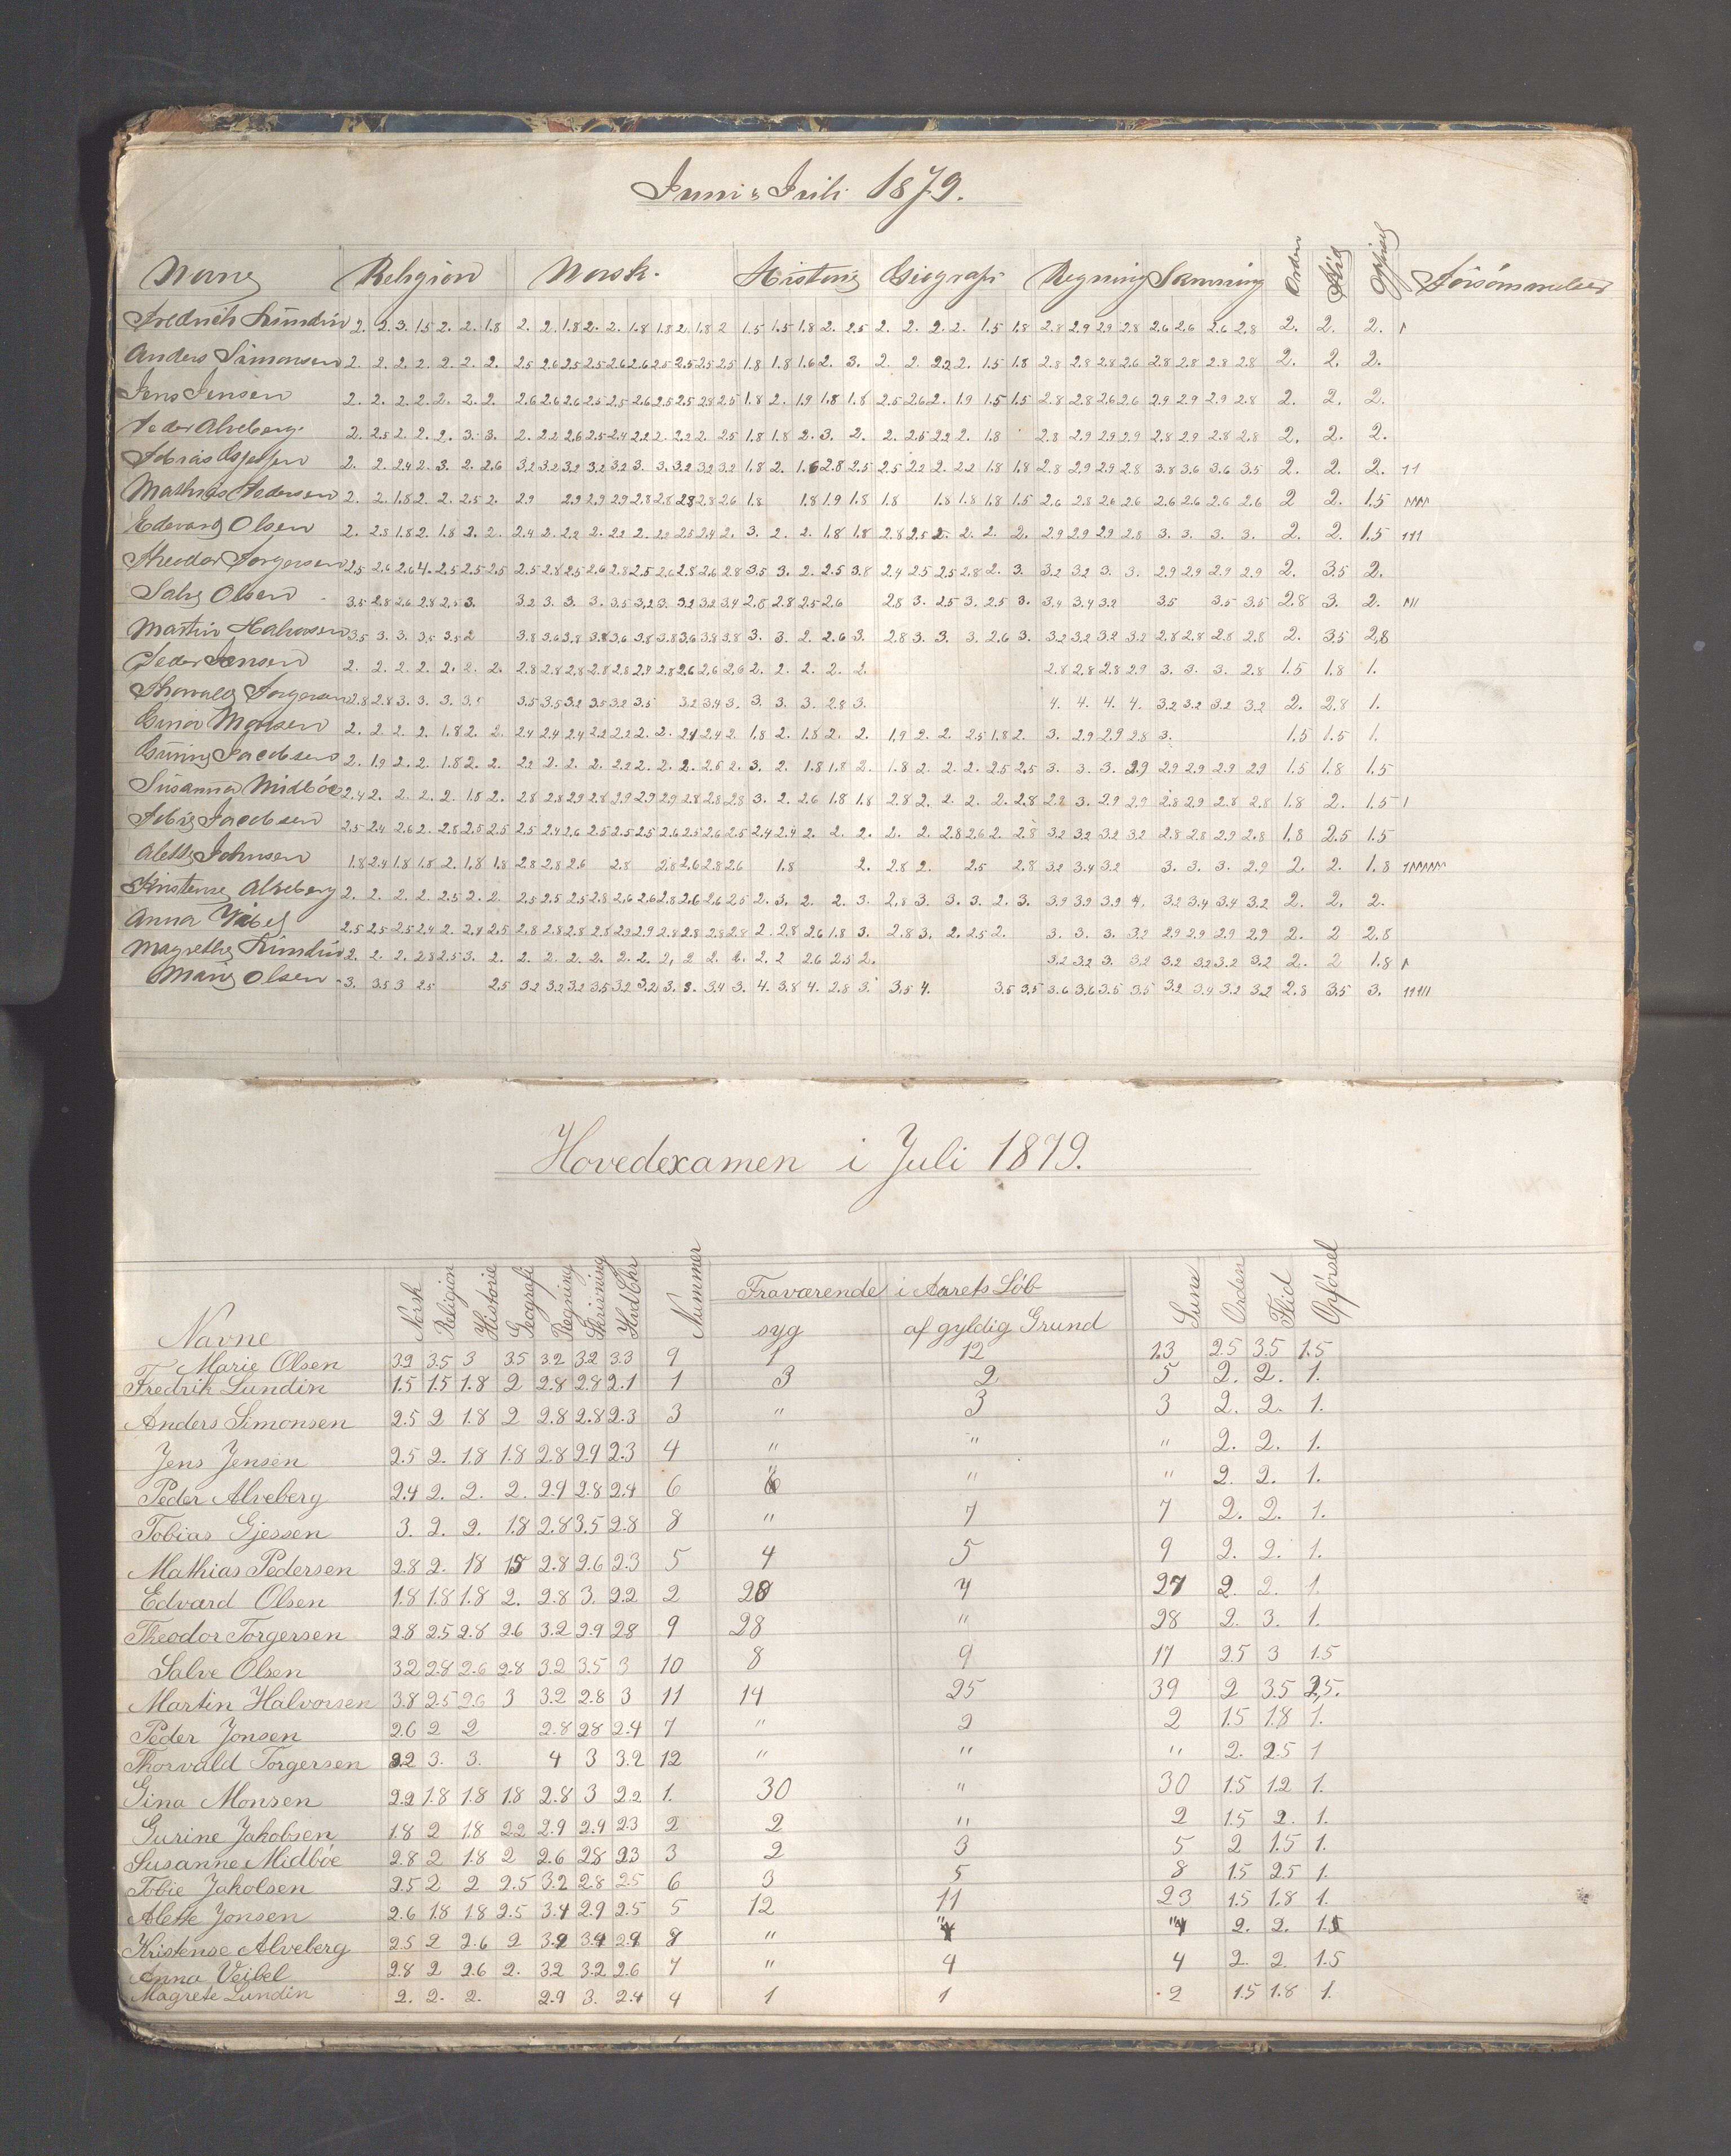 Juni & Juli 1879.
Navne Religion Norsk. Historie Geografi Regning Skrivning Orden Flid Opførsel Forsømmelser
Fredrich Lundin 2. 2. 3. 1.5 2. 2. 1.8 2. 2. 1.8 2. 2. 1.8 1.8 2. 1.8 2 1.5 1.5 1.8 2. 2.5 2. 2. 2. 2. 1.5 1.8 2.8 2.9 2.9 2.8 2.6 2.6 2.6 2.8 2. 2. 2.
Anders Simonsen 2. 2. 2. 2. 2. 2. 2. 2.5 2.6 2.5 2.5 2.6 2.6 2.5 2.5 2.5 2.5 1.8 1.8 1.6 2. 3. 2. 2. 2.2 2. 1.5 1.8 2.8 2.8 2.8 2.6 2.8 2.8 2.8 2.8 2. 2. 2.
Jens Jensen 2. 2. 2. 2. 2. 2. 2. 2.6 2.6 2.6 2.5 2.5 2.6 2.5 2.5 2.8 2.5 1.8 2. 1.9 1.8 1.8 2.5 2.6 2. 1.9 1.5 1.5 2.8 2.8 2.6 2.6 2.9 2.9 2.9 2.8 2. 2. 2.
Peder Alveberg. 2. 2.5 2. 2. 2. 3. 3. 2. 2.2 2.6 2.5 2.4 2.2 2. 2.2 2. 2.5 1.8 1.8 2. 3. 2. 2. 2.5 2.2 2. 1.8 2.8 2.9 2.9 2.9 2.8 2.9 2.8 2.8 2. 2. 2.
Tobias Gjessen 2. 2. 2.4 2. 3. 2. 2.6 3.2 3.2 3.2 3.2 3.2 3. 3. 3.2 3.2 3.2 1.8 2. 1.6 2.8 2.5 2.5 2.2 2. 2.2 1.8 1.8 2.8 2.9 2.9 2.8 3.8 3.6 3.6 3.5 2. 2. 2.
Mathias Pedersen 2. 2. 1.8 2. 2. 2.5 2. 2.9 2.9 2.9 2.9 2.8 2.8 2.8 2.8 2.6 1.8 1.8 1.9 1.8 1.8 1.8 1.8 1.8 1.5 2.6 2.8 2.6 2.6 2.6 2.6 2.6 2.6 2 2. 1.5
Edevard Olsen 2. 2.8 1.8 2. 1.8 2. 2. 2.4 2. 2.2 2. 2.2 2. 2.2 2.5 2.4 2. 3. 2. 2. 1.8 1.8 2.8 2.5 2. 2. 2. 2. 2.9 2.9 2.9 2.8 3. 3. 3. 3. 2. 2. 1.5
Theodor Torgersen 2.5 2.6 2.6 4. 2.5 2.5 2.5 2.5 2.8 2.5 2.6 2.8 2.5 2.6 2.8 2.6 2.8 3.5 3. 2. 2.5 3.8 2.4 2.5 2.5 2.8 2. 3. 3.2 3.2 3. 3. 2.9 2.9 2.9 2.9 2. 3.5 2.
Salve Olsen 3.5 2.8 2.6 2.8 2.5 3. 3.2 3. 3. 3. 3.5 3.2 3. 3.2 3.2 3.4 2.8 2.8 2.5 2.6 2.8 3. 2.5 3. 2.5 3. 3.4 3.4 3.2 3.5 3.5 3.5 2.8 3. 2.
Martin Halvorsen 3.5 3. 3. 3.5 3.5 2 3.8 3.6 3.8 3.8 3.6 3.8 3.8 3.6 3.8 3.8 3. 3. 2. 2.6 3. 2.8 3. 3. 3. 2.6 3. 3.2 3.2 3.2 3.2 2.8 2.8 2.8 2.8 2. 3.5 2.8
Peder Jonsen 2. 2. 2. 2. 2. 2. 2. 2.8 2.8 2.8 2.8 2.8 2.8 2.8 2.6 2.6 2.6 2. 2. 2. 2. 2. 2.8 2.8 2.8 2.9 3. 3. 3. 2.8 1.5 1.8 1.
Thorvald Torgersen 2.8 2.8 3. 3. 3. 3.5 3.5 3.5 3.2 3.5 3.2 3.5 3.2 3.4 3. 3. 3. 3. 2.8 3. 4. 4. 4. 4. 3.2 3.2 3.2 3.2 2. 2.8 1.
Gina Monsen 2. 2. 2. 2. 1.8 2. 2. 2.4 2.4 2.4 2.2 2.2 2. 2. 2.4 2.4 2. 1.8 2. 1.8 2. 2. 1.9 2. 2. 2.5 1.8 2. 3. 2.9 2.9 2.8 3. 1.5 1.5 1.
Gurine Jacobsen 2. 1.9 2. 2. 1.8 2. 2. 2.2 2. 2. 2. 2.2 2. 2. 2. 2.5 2. 3. 2. 1.8 1.8 2. 1.8 2. 2. 2. 2.5 2.5 3. 3. 3. 2.9 2.9 2.9 2.9 2.9 1.5 1.8 1.5
Susanna Midbøe 2.4 2. 2. 2. 2. 1.8 2. 2.8 2.8 2.9 2.8 2.9 2.9 2.9 2.8 2.8 2.8 3. 2. 2.6 1.8 1.8 2.8 2. 2. 2. 2. 2.8 2.8 3. 2.9 2.9 2.8 2.9 2.8 2.8 1.8 2. 1.5
Tobie Jacobsen 2.5 2.4 2.6 2. 2.8 2.5 2.5 2.5 2.4 2.6 2.5 2.5 2.5 2.6 2.5 2.6 2.5 2.4 2.4 2. 2. 2. 2. 2. 2.8 2.6 2. 2.8 3.2 3.2 3.2 3.2 2.8 2.8 2.9 2.8 1.8 2.5 1.5
Alette Johnsen 1.8 2.4 1.8 1.8 2. 1.8 1.8 2.8 2.8 2.6 2.8 2.8 2.6 2.8 2.6 1.8 2. 2.8 2. 2.5 2.8 3.2 3.4 3.2 3. 3. 3. 2.9 2. 2. 1.8
Kristense Alveberg 2. 2. 2. 2. 2.5 2. 2. 2.5 2.5 2.5 2.8 2.6 2.6 2.8 2.6 2.6 2.5 2. 3. 2. 2. 3. 2.8 3. 3. 3. 2. 3. 3.9 3.9 3.9 4. 3.2 3.4 3.4 3.2 2. 2. 2.
Anna Vibel 2.5 2.5 2.5 2.4 2. 2.4 2.5 2.8 2.8 2.8 2.8 2.9 2.9 2.8 2.8 2.8 2.8 2. 2.8 2.6 1.8 3. 2.8 3. 2. 2.5 2. 3. 3. 3. 3.2 2.9 2.9 2.9 2.9 2. 2 2.8
Magrethe Lundin 2. 2. 2. 2.8 2.5 3. 2. 2. 2. 2. 2. 2. 2. 2. 2 2. 2. 2. 2 2.6 2.5 2. 3.2 3.2 3. 3.2 3.2 3.2 3.2 3.2 2. 2 1.8
Marie Olsen 3. 3.5 3 2.5 2.5 3.2 3.2 3.2 3.5 3.2 3.2 3. 3. 3.4 3. 4. 3.8 4. 2.8 3. 3.5 4. 3.5 3.5 3.6 3.6 3.5 3.5 3.2 3.4 3.2 3.2 2.8 3.5 3.
Hovedexamen i Juli 1879.
Navne Norsk Religion Historie Geografi Regning Skrivning HvdChr Nummer Fraværende i Aarets Løb syg af gyldig Grund Sum Orden Flid Opførsel
Marie Olsen 3.2 3.5 3 3.5 3.2 3.2 3.3 9 1 12 13 2.5 3.5 1.5
Fredrik Lundin 1.5 1.5 1.8 2 2.8 2.8 2.1 1 3 2 5 2. 2. 1.
Anders Simonsen 2.5 2 1.8 2 2.8 2.8 2.3 3 " 3 3 2. 2. 1.
Jens Jensen 2.5 2. 1.8 1.8 2.8 2.9 2.3 4 " " " 2. 2. 1.
Peder Alveberg 2.4 2. 2. 2. 2.9 2.8 2.4 6 " " " 2. 2. 1.
Tobias Gjessen 3. 2. 2. 1.8 2.8 3.5 2.8 8 " 7 7 2. 2. 1.
Mathias Pedersen 2.8 2. 1.8 1.5 2.8 2.6 2.3 5 4 5 9 2. 2. 1.
Edvard Olsen 1.8 1.8 1.8 2. 2.8 3. 2.2 2 20 7 27 2. 2. 1.
Theodor Torgersen 2.8 2.5 2.8 2.6 3.2 2.9 2.8 9 28 " 28 2. 3. 1.
Salve Olsen 3.2 2.8 2.6 2.8 3.2 3.5 3 10 8 9 17 2.5 3 1.5
Martin Halvorsen 3.8 2.5 2.6 3 3.2 2.8 3 11 14 25 39 2 3.5 2.5.
Peder Jonsen 2.6 2 2 2.8 2.8 2.4 7 " 2 2 1.5 1.8 1.
Thorvald Torgersen 3.2 3. 3. 4 3 3.2 12 " " " 2. 2.5 1
Gina Monsen 2.2 1.8 1.8 1.8 2.8 3 2.2 1. 30 " 30 1.5 1.2 1.
Gurine Jakobsen 1.8 2 1.8 2.2 2.9 2.9 2.3 2 2 " 2 1.5 2. 1.
Susanne Midbøe 2.8 2 1.8 2 2.6 2.8 2.3 3 2 3 5 2 1.5 1.
Tobie Jakobsen 2.5 2 2 2.5 3.2 2.8 2.5 6 3 5 8 1.5 2.5 1.
Alette Jonsen 2.6 1.8 1.8 2.5 3.4 2.9 2.5 5 12 11 23 1.5 1.8 1.
Kristense Alveberg 2.5 2 2.6 2 3.9 3.4 2.9 8 " 4 4 2. 2. 1.5
Anna Veibel 2.8 2 2.6 2. 3.2 3.2 2.6 7 " 4 4 2. 2 1.5
Magrete Lundin 2. 2. 2. 2.9 3. 2.4 4 1 1 2 1.5 1.8 1.